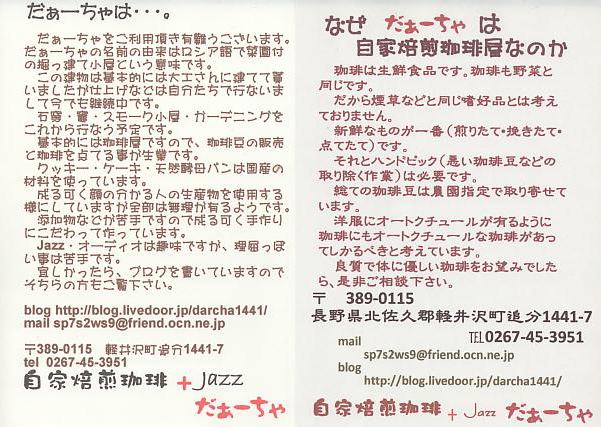 だぁーちゃは・・・。
だぁーちゃをご利用頂き有難うございます。
だぁーちゃの名前の由来はロシア語で菜園付
の掘っ建て小屋という意味です。
この建物は基本的には大工さんに建てて貰
いましたが仕上げなどは自分たちで行ないま
して今でも継続中です。
石窯・窯・スモーク小屋・ガーデニングを
これから行なう予定です。
基本的には珈琲屋ですので、珈琲豆の販売
と珈琲を点てる事が生業です。
クッキー・ケーキ・天然酵母パンは国産の
材料を使っています。
成る可く顔の分かる人の生産物を使用する
様にしていますが全部は無理が有るようです。
添加物などが苦手ですので成る可く手作り
にこだわって作っています。
Jazz・オーディオは趣味ですが、理屈っぽ
い事は苦手です。
宜しかったら、ブログを書いていますので
そちらの方もご覧下さい。
blog http://blog.livedoor.jp/darcha1441/
mail sp7s2ws9@friend.ocn.ne.jp
〒389-0115 軽井沢町追分1441-7
tel 0267-45-3951
自家焙煎珈琲 + Jazz
だぁーちゃ
なぜ だぁーちゃ は
自家焙煎珈琲屋なのか
珈琲は生鮮食品です。珈琲も野菜と
同じです。
だから煙草などと同じ嗜好品とは考え
ておりません。
新鮮なものが一番(煎りたて・挽きたて・
点てたて)です。
それとハンドピック(悪い珈琲豆などの
取り除く作業)は必要です。
総ての珈琲豆は農園指定で取り寄せて
います。
洋服にオートクチュールが有るように
珈琲にもオートクチュールな珈琲があっ
てしかるべきと考えています。
良質で体に優しい珈琲をお望みでした
ら、是非ご相談下さい。
〒 389-0115
長野県北佐久郡軽井沢町追分1441-7
TEL0267-45-3951
mail
sp7s2ws9@friend.ocn.ne.jp
blog
http://blog.livedoor.jp/darcha1441/
自家焙煎珈琲 + Jazz だぁーちゃ